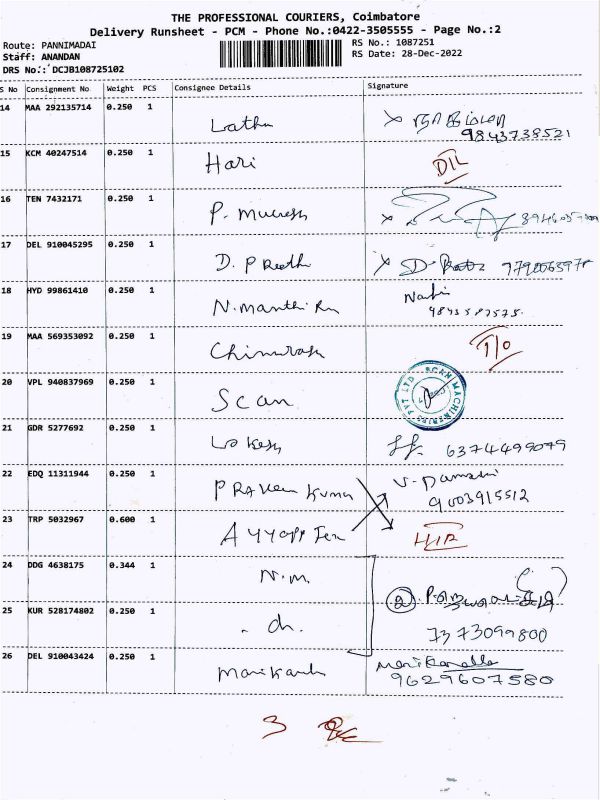 THE PROFESSIONAL COURIERS, Coimbatore
Delivery Runsheet - PCM - Phone No.:0422-3505555 - Page No.:2
Route: PANNIMADAI
RS No.: 1087251
Staff: ANANDAN
RS Date: 28-Dec-2022
DRS No.: DCJB108725102
S No Consignment No Weight PCS Consignee Details Signature
14 MAA 292135714 0.250 1 Latha
9843738521
15 KCM 40247514 0.250 1 Hari D/L
16 TEN 7432171 0.250 1 P.
17 DEL 910045295 0.250 1 D. Preethi
18 HYD 99861410 0.250 1 N.
19 MAA 569353092 0.250 1
20 VPL 940837969 0.250 1 Scan
SCAN MACHINERIES PVT LTD
21 GDR 5277692 0.250 1 Lokesh 6374499079
22 EDQ 11311944 0.250 1 Praveen Kumar
9003915512
23 TRP 5032967 0.600 1
24 DDG 4638175 0.344 1 N.m.
25 KUR 528174802 0.250 1 . Ch.
7373099800
26 DEL 910043424 0.250 1 Manikanda
9629607580
3